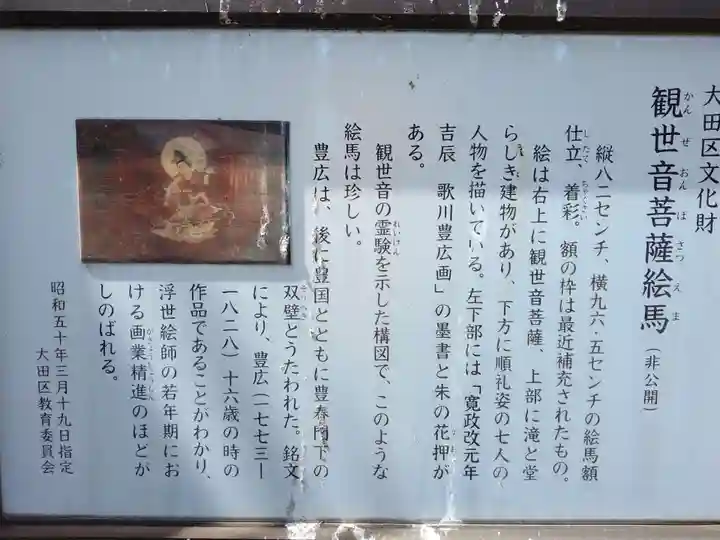 大田区文化財
観世音菩薩絵馬(非公開)
かんぜおんぼさつえま
縦八二センチ、横九六・五センチの絵馬額
仕立、着彩。額の枠は最近補充されたもの。
絵は右上に観世音菩薩、上部に滝と堂
らしき建物があり、下方に順礼姿の七人の
人物を描いている。左下部には「寛政改元年
吉辰 歌川豊広画」の墨書と朱の花押が
ある。
観世音の霊験を示した構図で、このような
絵馬は珍しい。
豊広は、後に豊国とともに豊春門下の
双壁とうたわれた。銘文
により、豊広(一七七三ー
一八二八)十六歳の時の
作品であることがわかり、
浮世絵師の若年期にお
ける画業精進のほどが
しのばれる。
昭和五十年三月十九日指定
大田区教育委員会